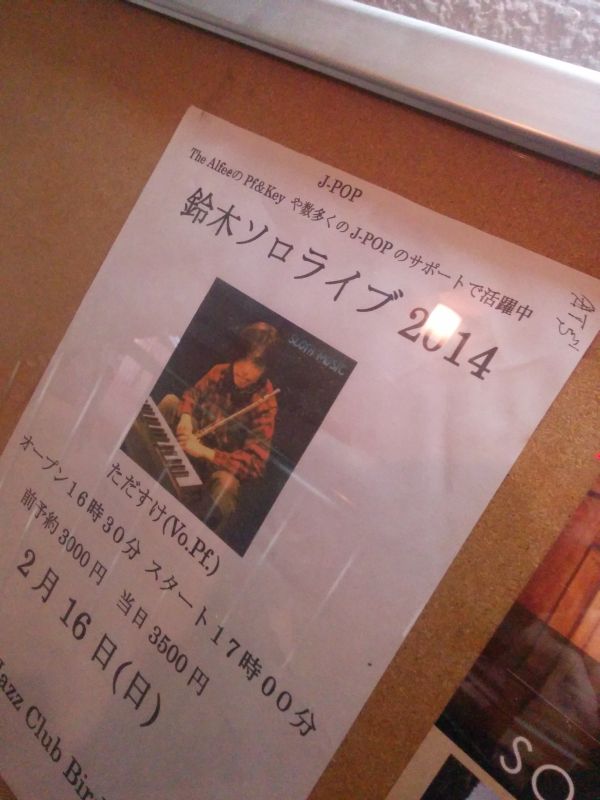 J-POP
The AlfeeのPf&Key や数多くのJ-POPのサポートで活躍中
鈴木ソロライブ 2014
SLOTH MUSIC
ただすけ(Vo.Pf.)
オープン16時30分 スタート17時00分
前予約3000円 当日3500円
2月16日(日)
Jazz Club
SO